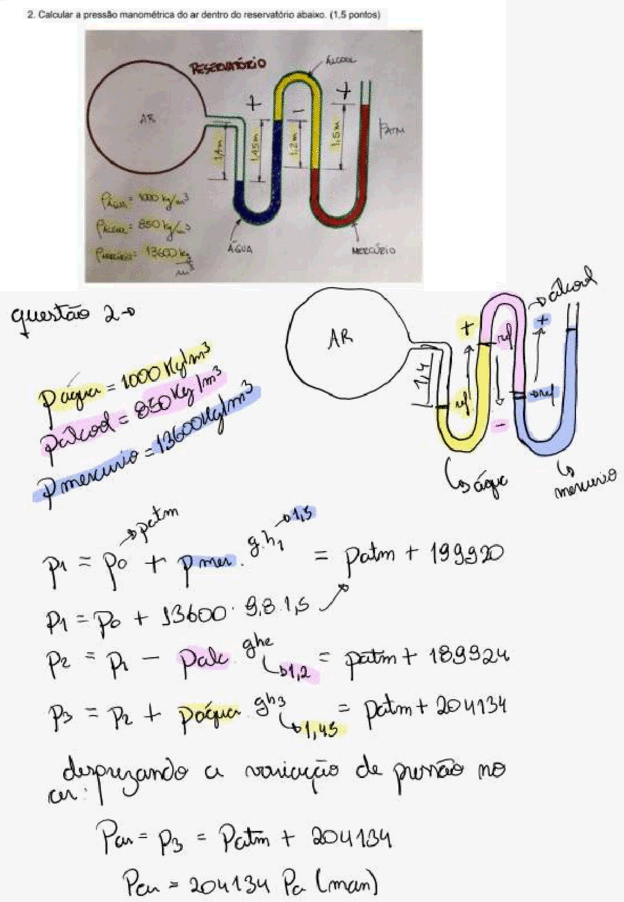 2. Calcular a pressão manométrica do ar dentro do reservatório abaixo. (1,5 pontos)
RESERVATÓRIO
ÁLCOOL
+
-
+
AR
1,4m
1,45m
1,2m
1,5m
PATM
ρÁGUA = 1000 kg/m³
ρÁLCOOL = 850 kg/m³
ρMERCÚRIO = 13600 kg/m³
ÁGUA
MERCÚRIO
questão 2→
AR
1,4
+
ref
ref
-
+
ref
→álcool
água
mercurio
ρ água = 1000 Kg/m³
ρ alcool = 850 Kg/m³
ρ mercurio = 13600 Kg/m³
→patm
→1,5
p1 = p0 + ρ mer. g.h1 = patm + 199920
p1 = p0 + 13600. 9,8.1,5
p2 = p1 - ρalc ghe = patm + 189924
→1,2
p3 = p2 + ρáqua. gh3 = patm + 204134
→1,45
desprezando a variação de pressão no
ar:
Par = p3 = Patm + 204134
Par = 204134 Pa (man)